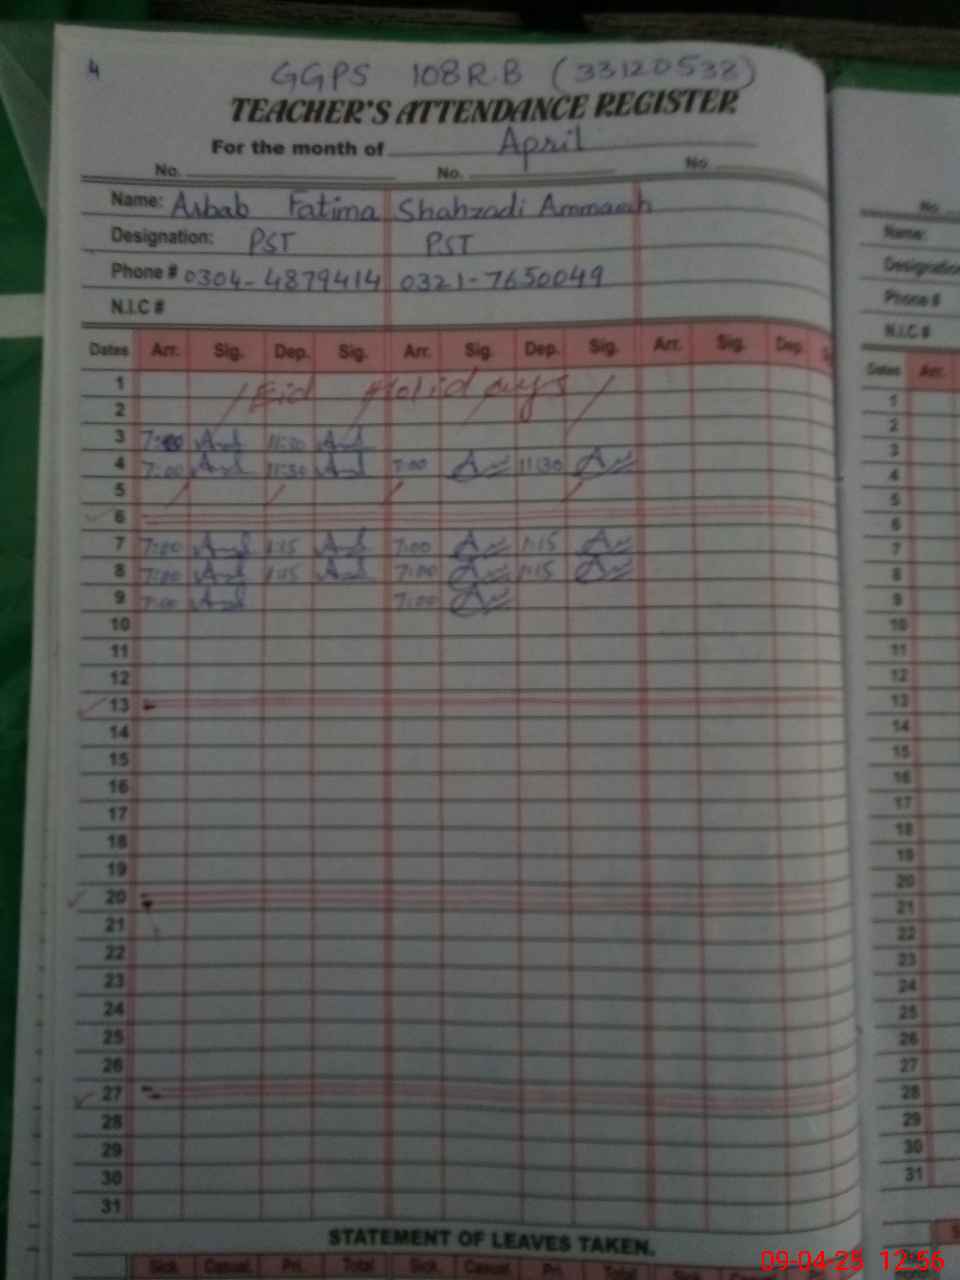 4
GGPS 108 R.B (33120538)
TEACHER'S ATTENDANCE REGISTER
For the month of April
No. No. No.
Name: Arbab Fatima Shahzadi Ammarah
Designation: PST PST
Phone # 0304-4879414 0321-7650049
N.I.C #
Dates Arr. Sig. Dep. Sig. Arr. Sig. Dep. Sig. Arr. Sig. Dep. S
1 Eid Holidays
2
3 7:00 11:30
4 7:00 11:30 7:00 11:30
5
6
7 7:00 1:15 7:00 1:15
8 7:00 1:15 7:00 1:15
9 7:00 7:00
10
11
12
13
14
15
16
17
18
19
20
21
22
23
24
25
26
27
28
29
30
31
STATEMENT OF LEAVES TAKEN.
Sick. Casual. Pri. Total Sick. Casual. Pri. Total
No.
Name:
Designation
Phone #
N.I.C #
Dates Arr.
1
2
3
4
5
6
7
8
9
10
11
12
13
14
15
16
17
18
19
20
21
22
23
24
25
26
27
28
29
30
31
09-04-25 12:56